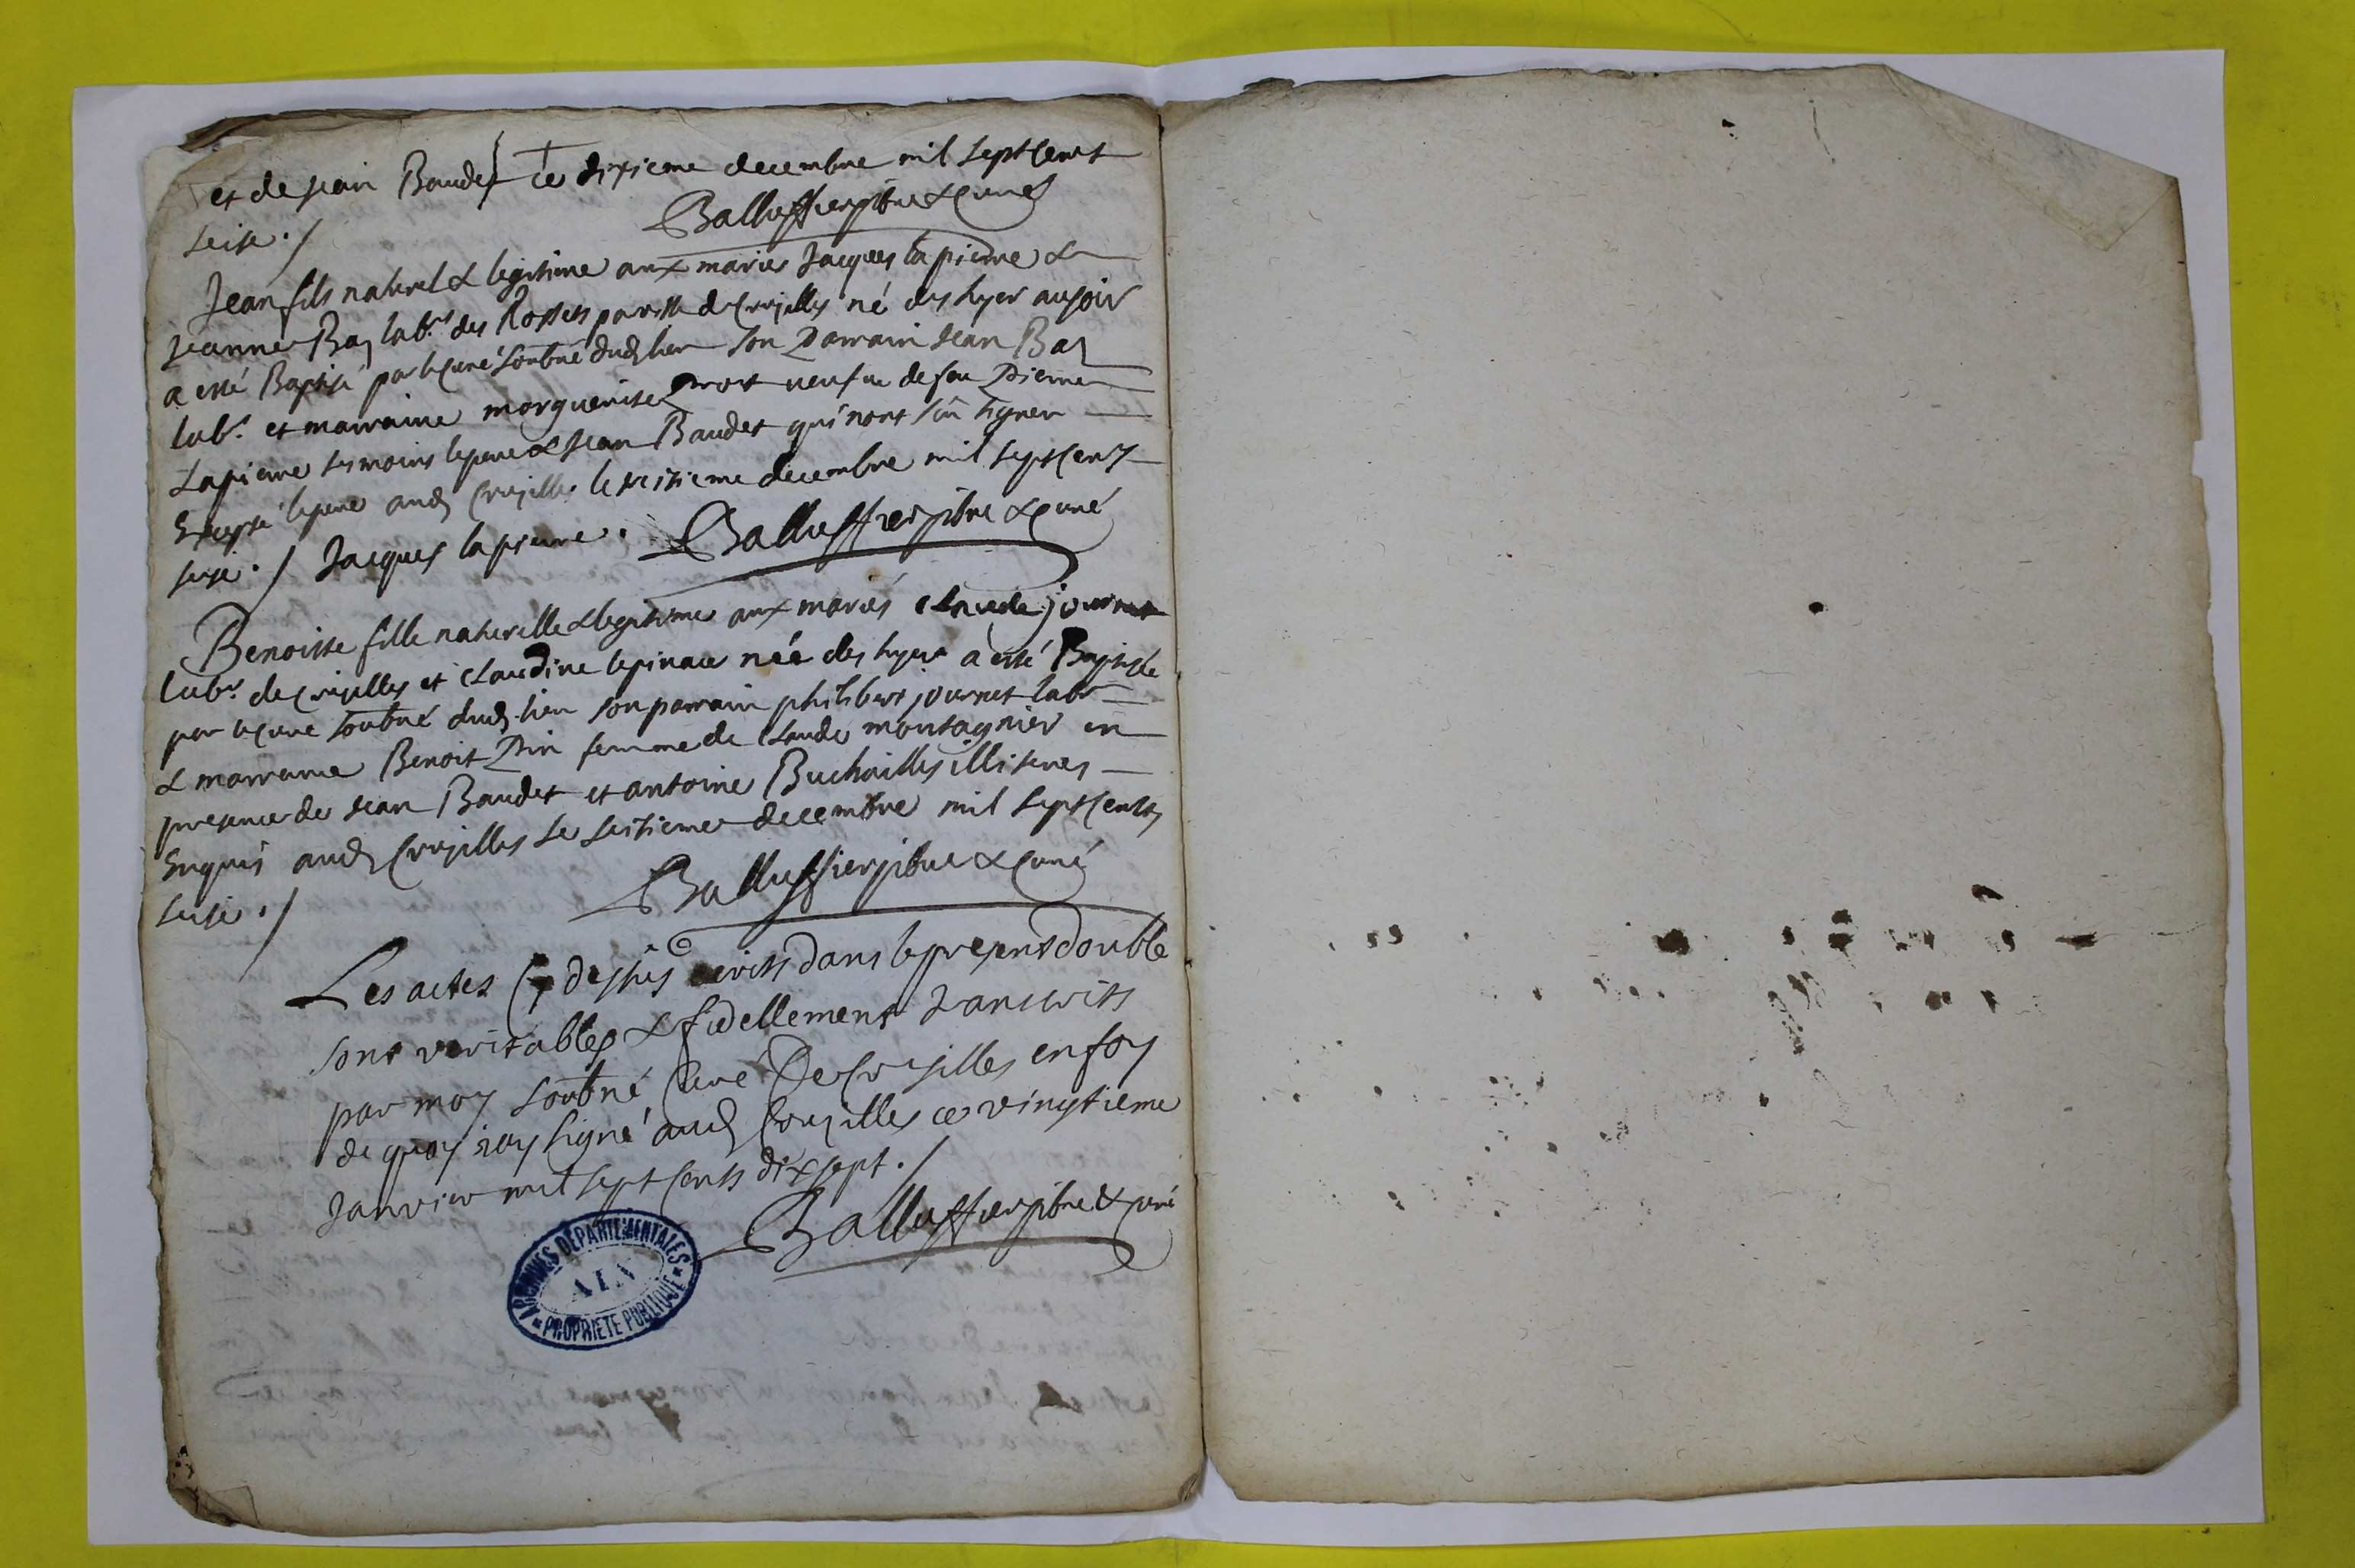 et de Jean Baudet ce dixieme decembre mil sept cent
seise ./ Balluffier pbre & curé
Jean fils naturel & legitime aux mariés Jacques lapierre &
Jeanne Bay labrs des parisse de Crujilles né des hyer au soir
a esté Baptisé par le curé soubné dud lieu son Parrain Jean Bay
labr. et marraine marguerite veufve de feu Pierre
Lapierre tesmoins le pere & Jean Baudet qui nont sçû signer
Excepté le pere aud Crujilles le seisieme decembre mil sept cents
seise ./ Jacques lapierre . Balluffier pbre & curé
Benoitte fille naturelle & legitime aux mariés Claude journet
labr de Crujilles et Claudine lepinace née des hyer a esté Baptisée
par le curé soubné dud lieu son parrain philibert journet labr
& marraine Benoit Pin femme de Claude montagnier en
presence de Jean Baudet et antoine Buchailles illiteres
Enquis aud Crujilles le seisieme decembre mil sept cents
seise ./ Balluffier pbre & curé
Les actes cy dessus ecrits dans le present double
sont veritables & fidellement transcrits
par moy soubné Curé De Crujilles en foy
de quoy jay signé aud Crujilles ce vingtieme
Janvier mil sept cents dix sept ./
Balluffier pbre & curé
ARCHIVES DÉPARTEMENTALES
AIN
PROPRIÉTÉ PUBLIQUE